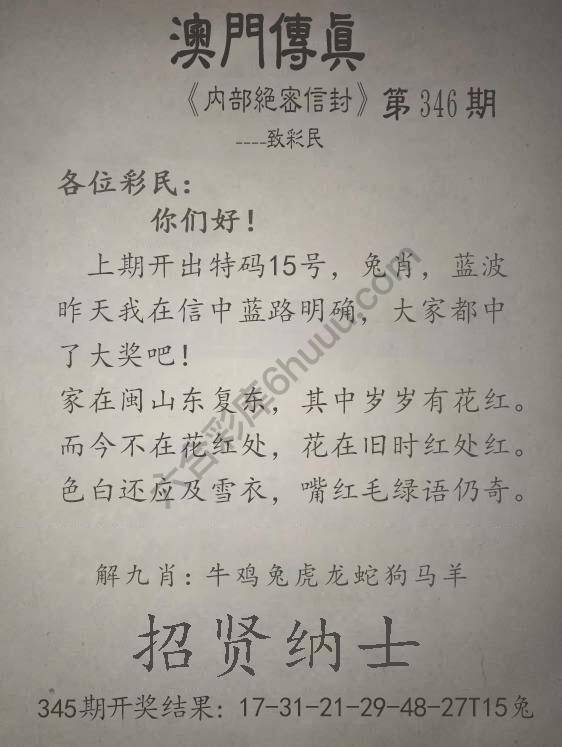 澳門傳眞
《内部絕密信封》第346期
----致彩民
各位彩民：
你们好！
上期开出特码15号，兔肖，蓝波
昨天我在信中蓝路明确，大家都中
了大奖吧！
家在闽山东复东，其中岁岁有花红。
而今不在花红处，花在旧时红处红。
色白还应及雪衣，嘴红毛绿语仍奇。
解九肖：牛鸡兔虎龙蛇狗马羊
招贤纳士
345期开奖结果：17-31-21-29-48-27T15兔
六合彩库6huuu.com